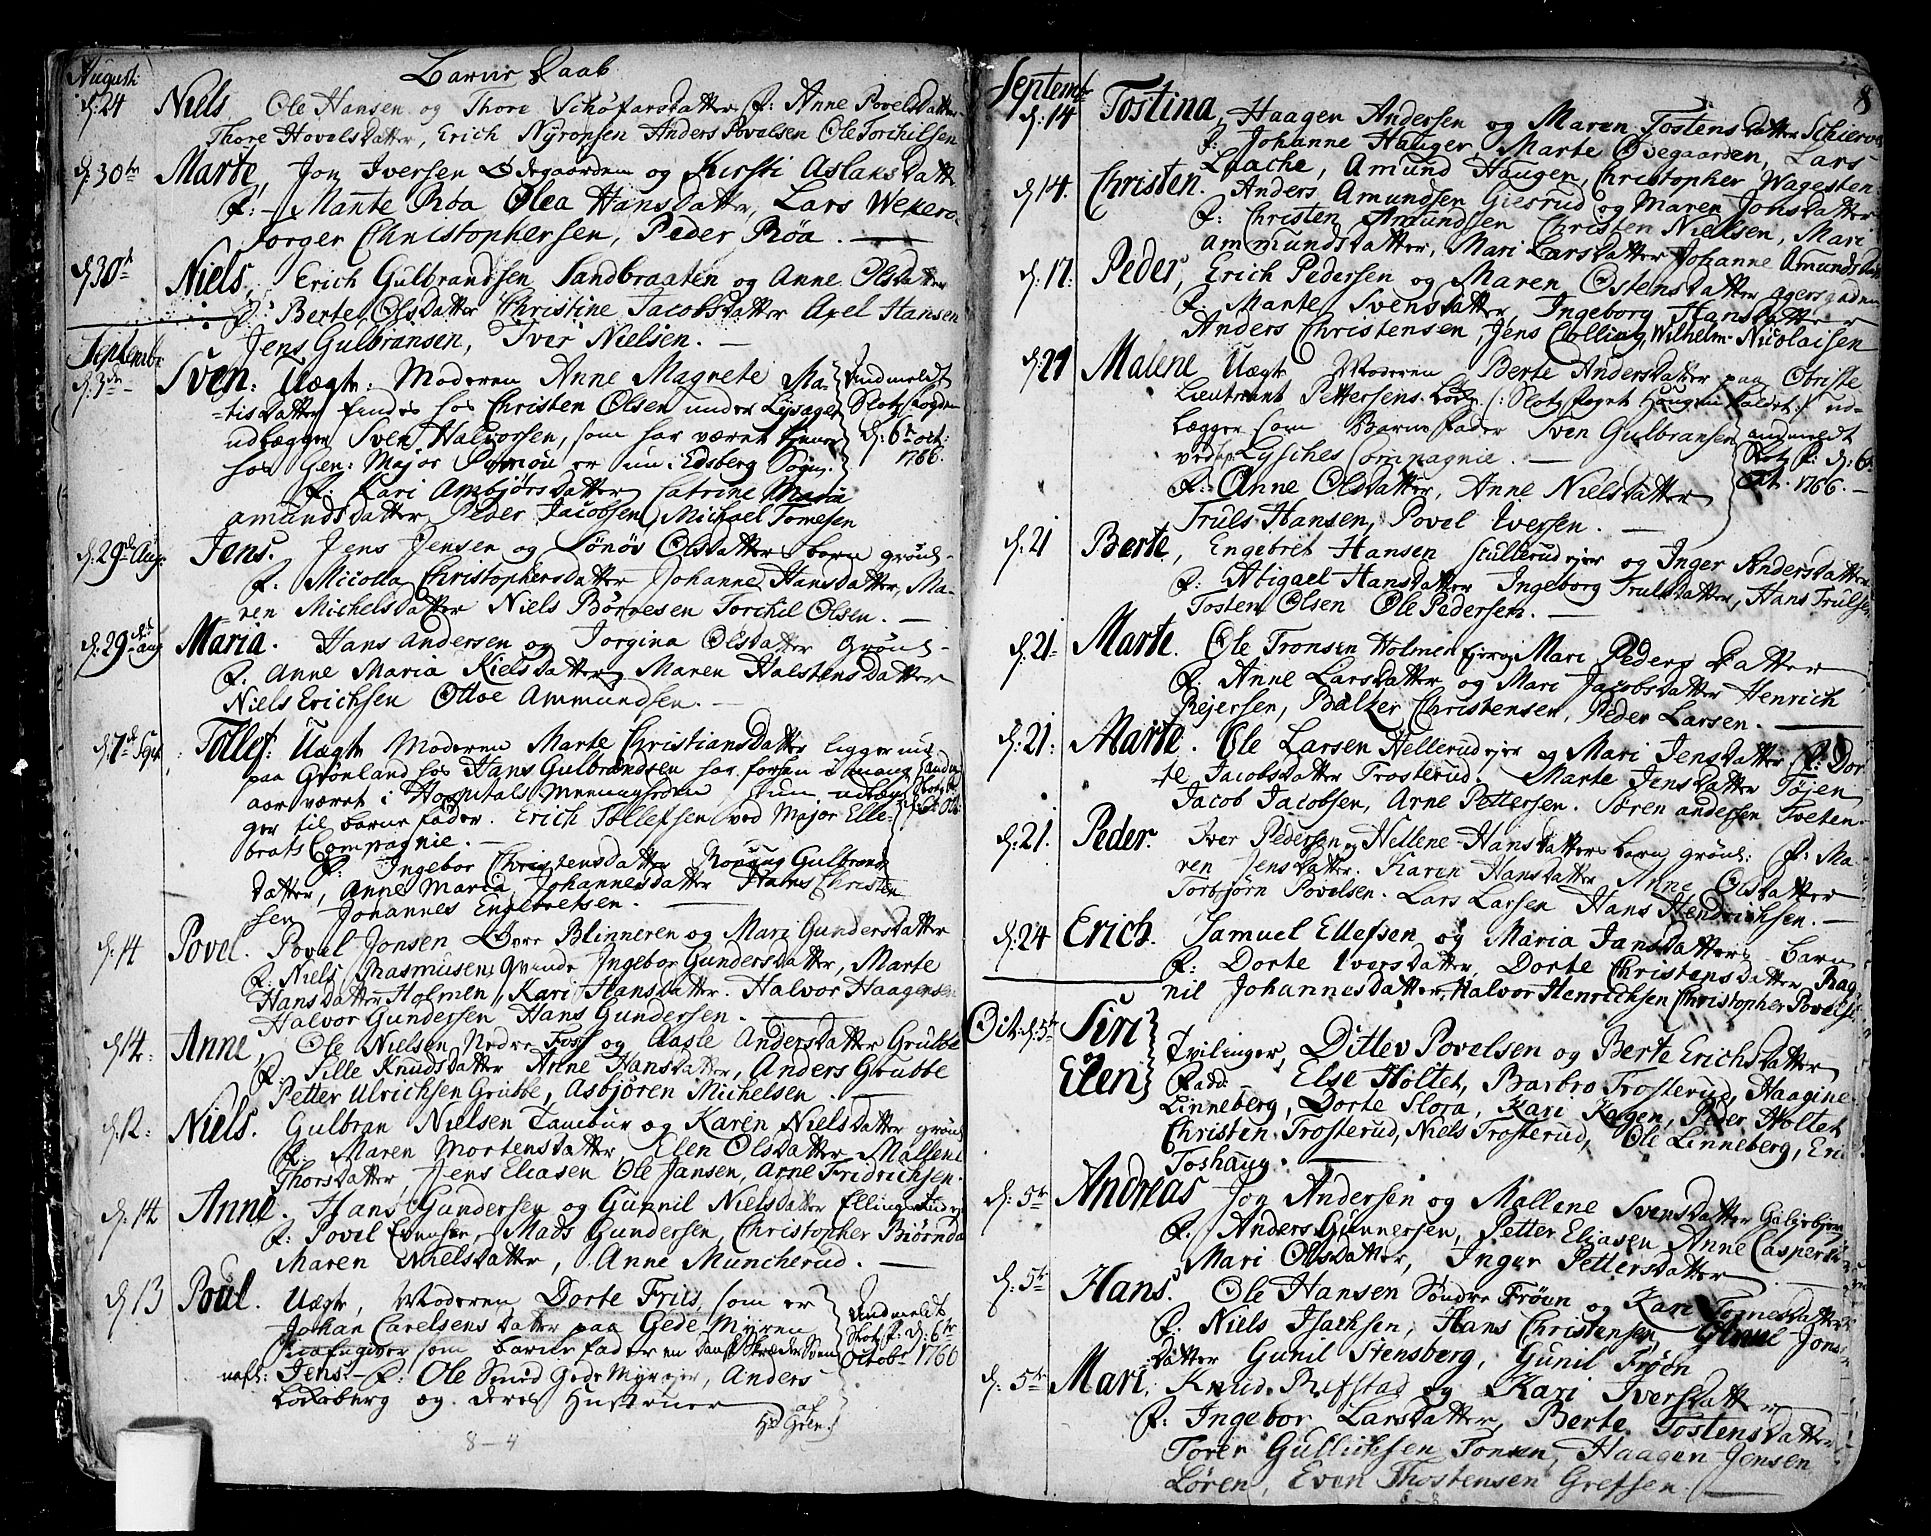 Augusti
Barne Daab
d: 24 Niels Ole Hansen og Thore Schøfarsdatter F: Anne Povelsdatter
Thore Hovelsdatter, Erich Nyropsen Anders Povelsen Ole Torchilsen
d: 30te Marte, Jon Iversen Ødegaarden og Kirsti Aslaksdatter
F: Mante Röa Olea Hansdatter, Lars Wekerø
Jørger Christophersen, Peder Röa.
d: 30t Niels, Erich Gulbrandsen Sandbraaten og Anne Olsdatter
F: Berte Olsdatter Christine Jacobsdatter Axel Hansen
Jens Gulbransen, Iver Nielsen.
Septembr
d: 3de Sven: Uægte: Moderen Anne Magrete Ma-
tisdatter findes hos Christen Olsen under Lysager
udlægger Sven Halvorsen, som har været tiener
hos Gen: Major er nu i Edsberg Sogn.
Andmeldt Slotz fogden d: 6te oct: 1766.
F: Kari Ambjørsdatter Catrine Maria
amundsdatter Peder Jacobsen, Michael Tomesen
d: 29de Aug: Jens. Jens Jensen og Sønøv Olsdatter barn grönl-
F: Nicolla Christophersdatter Johanne Hansdatter, Ma-
ren Michelsdatter Niels Börresen Torchil Olsen.
d: 29de aug Maria. Hans Andersen og Jorgina Olsdatter Grönl-
F. Anne Maria Nielsdatter Maren Halstensdatter
Niels Erichsen Ottoe Ammundsen.
d: 7de Sept Tollef: Uægte Moderen Marte Christiansdatter ligger nu
paa Grönland hos Hans Gulbrandsen har forhen i mang
aar været i Hospitals Meenigheden, hun udlæg
ger til barnefader. Erich Tollefsen ved Major Elle-
brats Compagnie.
F: Ingebor Christensdatter Gulbrands
datter, Anne Maria Johannesdatter Hans Christen
sen Johannes Engebretsen.
d: 14 Povel. Povel Jonsen Øvre Blinneren og Mari Gundersdatter
F. Niels Rasmusens Qvinde Ingebor Gundersdatter, Marte
Hansdatter Holmen, Kari Hansdatter. Halvor Haagensen
Halvor Gundersen Hans Gundersen.
d: 14: Anne, Ole Nielsen Nedre Foss og Aasle Andersdatter Grubbe
F. Sille Knudsdatter Anne Hansdatter, Anders Grubbe
Petter Ulrichsen Grubbe, Asbjören Michelsen.
d: 12: Niels. Gulbran Nielsen Tambur og Karen Nielsdatter grönl
F: Maren Mortensdatter, Elen Olsdatter, Mallene
Thorsdatter, Jens Eliasen Ole Jansen, Arne Fridrichsen.
d: 14 Anne. Hans Gundersen og Gunnil Nielsdatter Ellingsrudej
F: Povel Evensen, Mads Gundersen, Christopher Biørnda
Maren Nielsdatter, Anne Muncherud.
d: 13 Poul. Uægte, Moderen Dorte Friis, som er
Johan Carelsens datter paa Gede Myren
som barnefader en Dansk Skredder Sven
nafl: Jens. F: Ole Smed Gede Myrejer, Anders
Lodeberg og deres Hustruer
Andmeldt Slotz F. d: 6te Octobr 1766
8-4
Septembr
8
d: 14 Tostina, Haagen Andersen og Maren Tostensdatter Schierve
F: Johanne Hauger Marte Øvegaarden, Lars
Laache, Amund Haugen, Christopher Wagesten.
d: 14. Christen. Anders Amundsen Giesrud og Maren Jonsdatter
F: Christen Amundsen Christen Nielsen, Mari
Ammundsdatter, Mari Larsdatter Johanne Amundsda
d: 17: Peder, Erich Pedersen og Maren Ostensdatter agersgaden
F. Mante Svensdatter, Ingeborg Hansdatter
Anders Christensen, Jens Colling, Wilhelm Nicolaisen
d: 21 Malene Uægte Moderen Berte Andersdatter paa Christe
Lieutnant Pettersens Løke (: Slotz foget Hougen kaldet:) ud-
lægger som Barnefader Sven Gulbransen
ved Lysches Compagnie.
andmeldt Slotz F. d: 6te Oct. 1766.
F: Anne Olsdatter, Anne Nielsdatter
Truls Hansen, Povel Iversen.
d: 21 Berte, Engebret Hansen Skullerudejer og Inger Andersdatter
F: Abigael Hansdatter Ingeborg Trulsdatter, Hans Trulsen
Tosten Olsen Ole Pedersen.
d: 21. Marte. Ole Tronsen Holmen Ejer og Mari Peders datter
F. Anne Larsdatter og Mari Jacobsdatter Henrich
Rejersen, Balzer Christensen, Peder Larsen.
d: 21: Marte. Ole Larsen Hellerudejer og Mari Jensdatter F: Dor-
te Jacobsdatter Trosterud. Marte Jensdatter Töjen
Jacob Jacobsen, Arne Pettersen. Sören andersen Tveten.
d: 21. Peder. Iver Pedersen og Hellene Hansdatter barn grönl: F: Ma-
ren Jensdatter. Karen Hansdatter Anne Olsdatter
Torbjörn Povelsen. Lars Larsen Hans Hendrichsen.
d: 24 Erich. Samuel Ellefsen og Maria Jansdatter barn
F: Dorte Iversdatter, Dorte Christensdatter, Rag-
nil Johannesdatter, Halvor Henrichsen Christopher Povelse
Oct: d: 5te Siri
Elen
Tvilinger, Ditlev Povelsen og Berte Erichsdatter
Fadd: Else Holtet, Barbro Trosterud, Haagine
Linneberg, Dorte Flora, Kari Kagen, Peder Holtet
Christen Trosterud, Niels Trosterud, Ole Linneberg, Eri
Toshaug.
d: 5te Andreas Jon Andersen og Mallene Svensdatter Galgebjer
F. Anders Gunnersen, Petter Eliasen Anne Caspers
Mari Olsdatter, Inger Pettersdatter
d: 5te Hans. Ole Hansen Søndre Fröen og Kari Tomesdatter
F. Niels Isachsen, Hans Christensen, Jons
datter Gunil Stensberg, Gunil Fröen
d: 5te Mari, Knud Refstad og Kari Iversdatter
F: Ingebor Larsdatter, Berte Tostensdatter
Torer Gullichsen Tonsen, Haagen Jensen
Lören, Even Thostensen Grefsen.
6-8